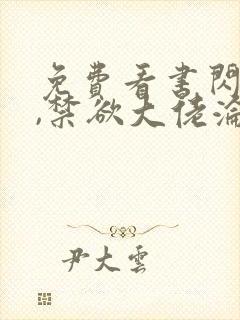 免費看書閃
,禁欲大佬淪
尹大雲